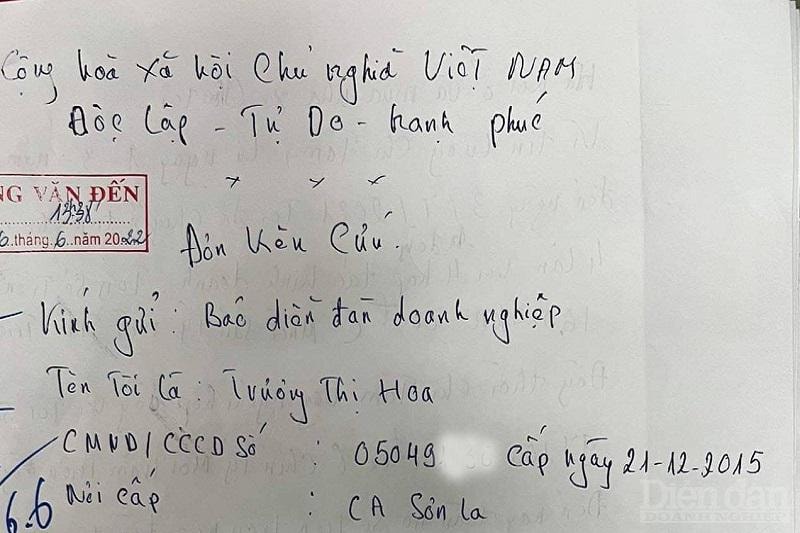 Cộng hoà xã hội Chủ nghĩa Việt NAM
Độc lập - Tự Do - hạnh phúc
NG VĂN ĐẾN
1338
6..tháng.6..năm 2022
Đơn Kêu Cứu.
- Kính gửi : Báo diễn đàn doanh nghiệp
Tên Tôi Là : Trương Thị Hoa
CMND/CCCD Số : 05049 cấp ngày 21-12-2015
Nơi cấp : CA Sơn la
6.6
Diễn đàn
DOANH NGHIỆP